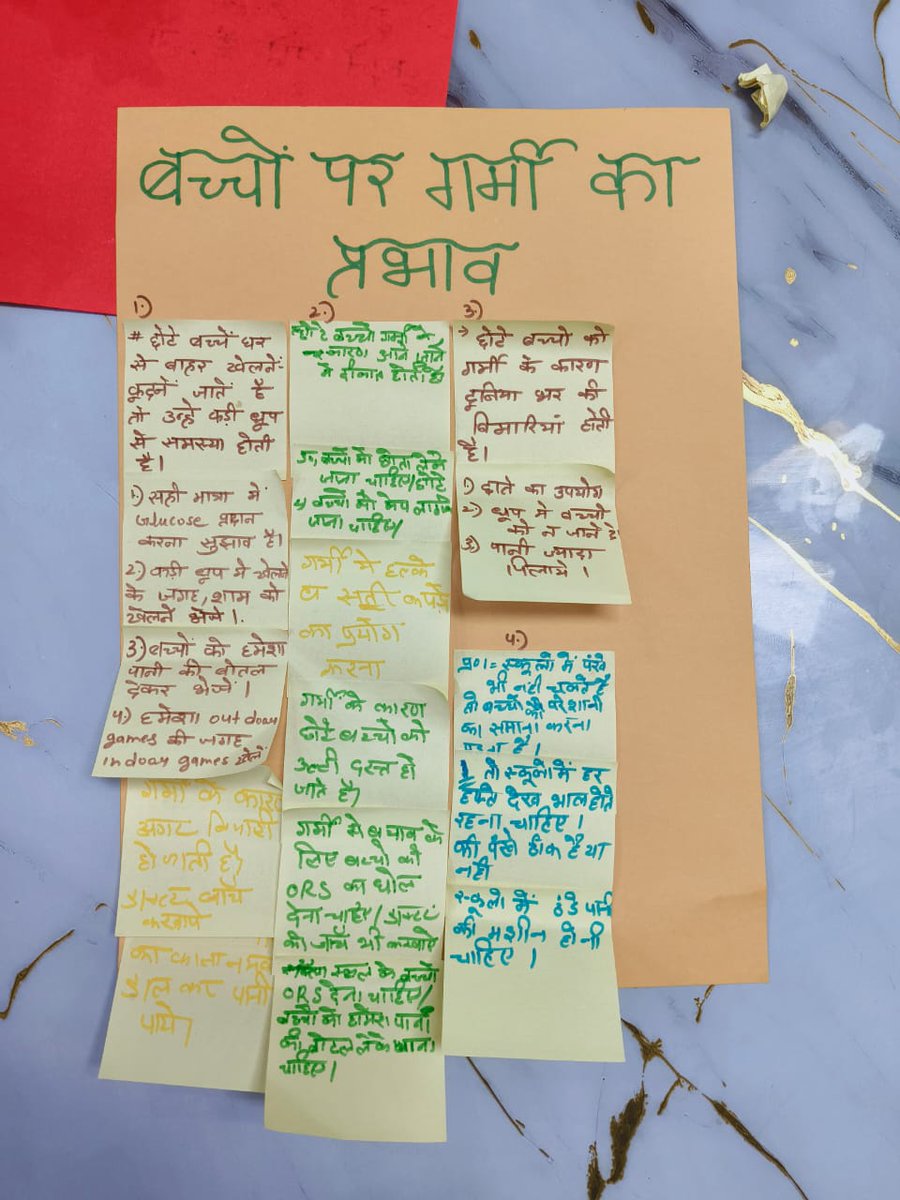 बच्चों पर गर्मी का
प्रभाव
1.)
# छोटे बच्चें घर
से बाहर खेलने-
कूदनें जातें है
तो उन्हे कड़ी धूप
से समस्या होती
है।
1.) सही मात्रा में
Glucose प्रदान
करना सुझाव है।
2.) कड़ी धूप मे खेलने
के जगह, शाम को
खेलने भेजे।
3.) बच्चों को हमेशा
पानी की बोतल
देकर भेजें।
4.) हमेशा out door
games की जगह
indoor games खेलें
गर्मी के कारण
अगर बिमारी
हो जाती है,
डाक्टर जाँच
करवाये
डाल कर पानी
2.)
छोटे बच्चो गर्मी के
कारण आने जाने
मे दीकत होती है
चाहिए
गर्मी मे हल्के
व सूती कपड़े
का प्रयोग
करना
गर्मी के कारण
छोटे बच्चो को
उल्टी दस्त हो
जाते है।
गर्मी से बचाव के
लिए बच्चो को
ORS का घोल
देना चाहिए। डाक्टर
की जाँच भी करवाये
स्कूल के बच्चो
ORS देना चाहिए।
बच्चो को हमेशा पानी
की बोटल लेके जाना
चाहिए।
3.)
→ छोटे बच्चो को
गर्मी के कारण
दूनिया भर की
बिमारियां होती
है।
1) छाते का उपयोग
2) धूप मे बच्चो
को न जाने दे
3) पानी ज्यादा
पिलाये।
4.)
प्र01= स्कूलो में पंखे
भी नही चलते है
तो बच्चो को परेशानी
का समाना करना
पडता है।
1 तो स्कूलो में हर
हफ्ते देख भाल होते
रहना चाहिए।
की पंखे ठीक है या
नही
स्कूलो में ठंडे पानी
की मशीन होनी
चाहिए।